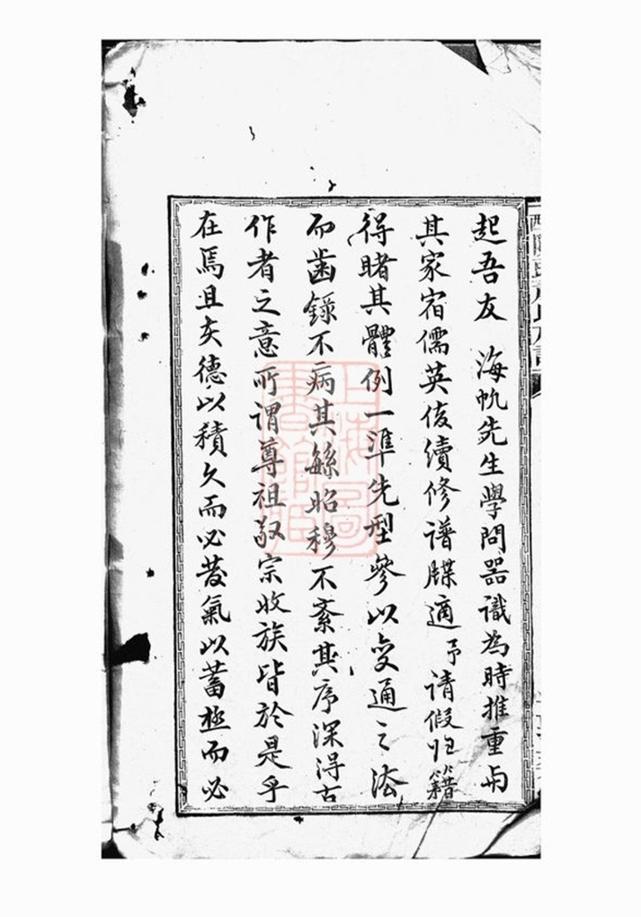 起吾友　海帆先生學問器識為時推重与
其家宿儒英俊續修譜牒適予請假归籍
得睹其體例一準先型參以变通之法
而齒錄不病其繇昭穆不紊其序深得古
作者之意所谓尊祖敬宗收族皆於是乎
在焉且夫德以積久而必发氣以蓄極而必
上海圖書館藏